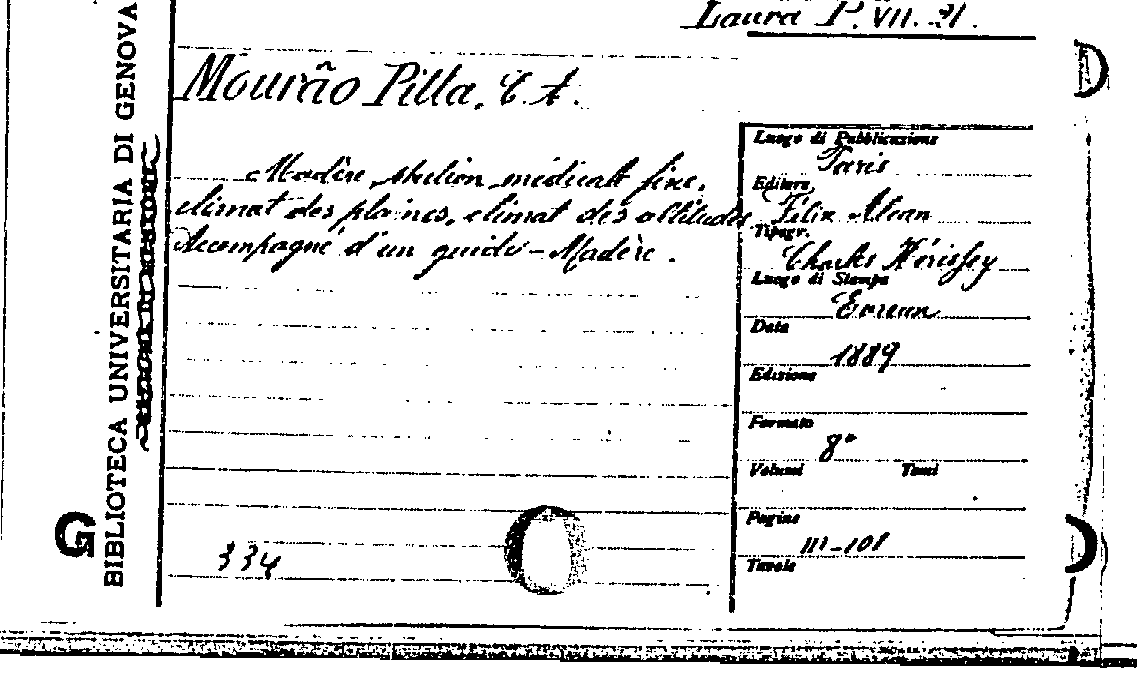 Laura P. VII. 21.
BIBLIOTECA UNIVERSITARIA DI GENOVA
G
Mourão Pitta, C. A.
Madère, station médicale fixe,
climat des plaines, climat des altitudes
Accompagné d'un guide-Madère.
334
Luogo di Pubblicazione
Paris
Editore
Félix Alcan
Tipogr.
Charles Hérissey
Luogo di Stampa
Evreux
Data
1889
Edizione
Formato
8°
Volumi Tomi
Pagine
III-101
Tavole